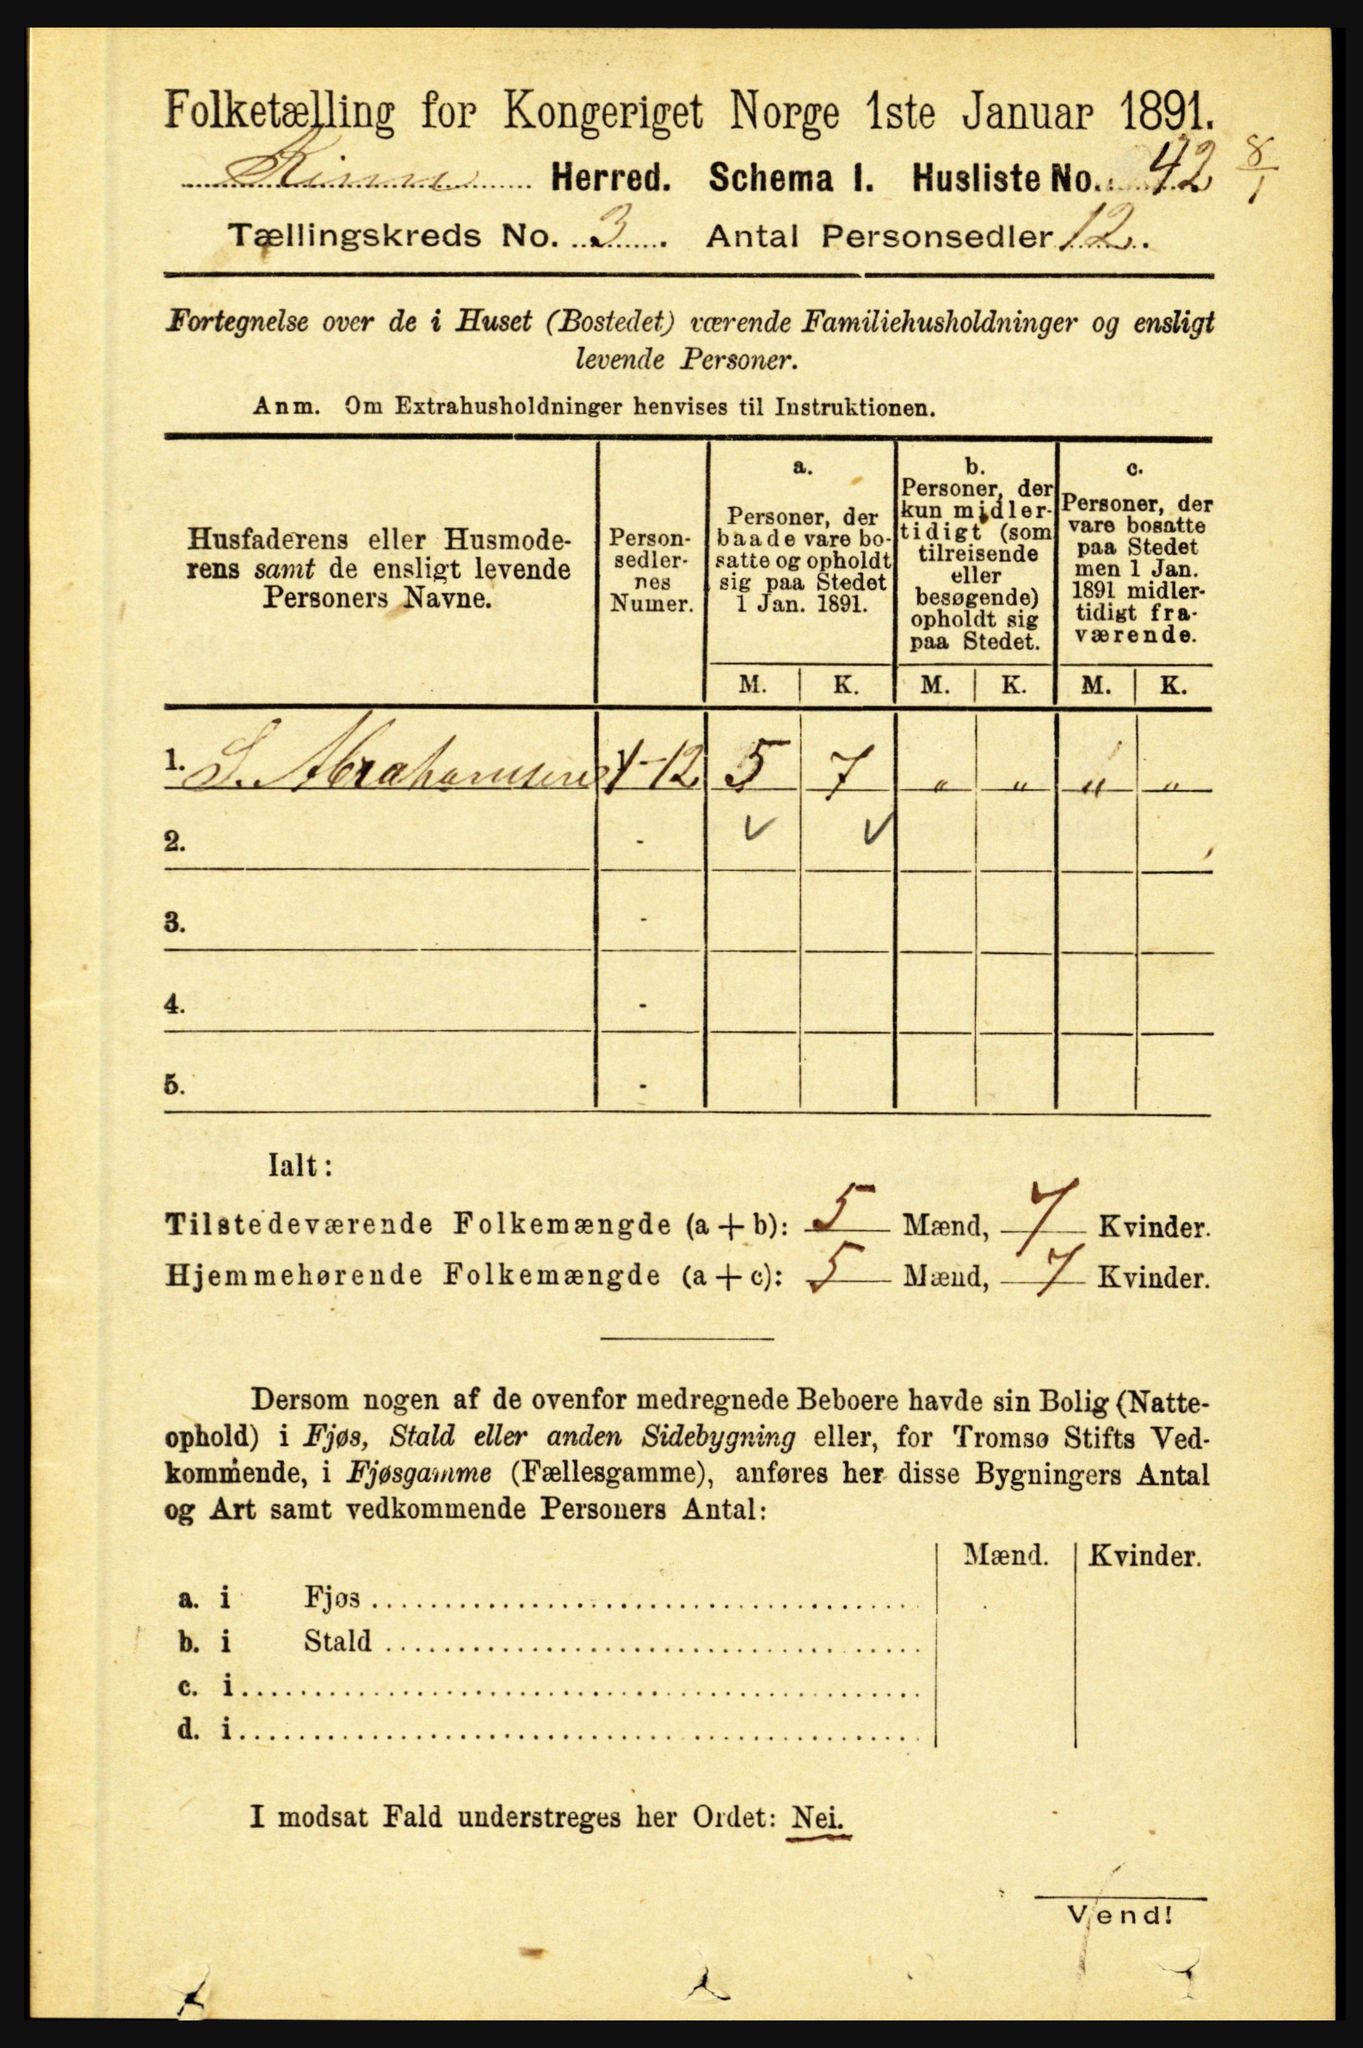 Folketælling for Kongeriget Norge 1ste Januar 1891.
Kinn Herred. Schema I. Husliste No. 42 8/1
Tællingskreds No. 3. Antal Personsedler 12.
Fortegnelse over de i Huset (Bostedet) værende Familiehusholdninger og ensligt
levende Personer.
Anm. Om Extrahusholdninger henvises til Instruktionen.
Husfaderens eller Husmode-
rens samt de ensligt levende
Personers Navne.
Person-
sedler-
nes
Numer.
a.
Personer, der
baade vare bo-
satte og opholdt
sig paa Stedet
1 Jan. 1891.
b.
Personer, der
kun midler-
tidigt (som
tilreisende
eller
besøgende)
opholdt sig
paa Stedet.
c.
Personer, der
vare bosatte
paa Stedet
men 1 Jan.
1891 midler-
tidigt fra-
værende.
M. K. M. K. M. K.
1. S. Abrahamsen 1-12 5 7 " " " "
2. - ✓ ✓
3. -
4. -
5. -
Ialt:
Tilstedeværende Folkemængde (a + b): 5 Mænd, 7 Kvinder.
Hjemmehørende Folkemængde (a + c): 5 Mænd, 7 Kvinder.
Dersom nogen af de ovenfor medregnede Beboere havde sin Bolig (Natte-
ophold) i Fjøs, Stald eller anden Sidebygning eller, for Tromsø Stifts Ved-
kommende, i Fjøsgamme (Fællesgamme), anføres her disse Bygningers Antal
og Art samt vedkommende Personers Antal:
Mænd. Kvinder.
a. i Fjøs
b. i Stald
c. i
d. i
I modsat Fald understreges her Ordet: Nei.
Vend!